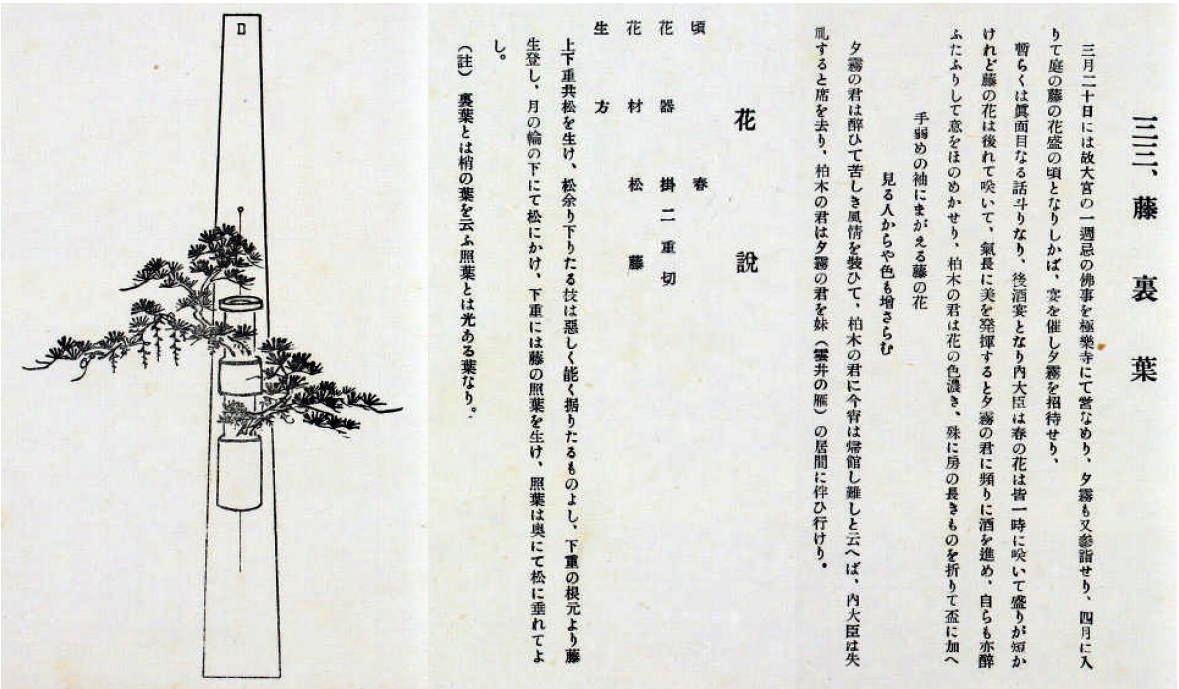 三三、藤裏葉
三月二十日には故大宮の一週忌の佛事を極樂寺にて營なめり、夕霧も又參詣せり、四月に入
りて庭の藤の花盛の頃となりしかば、宴を催し夕霧を招待せり、
暫らくは眞面目なる話斗りなり、後酒宴となり內大臣は春の花は皆一時に咲いて盛りが短か
けれど藤の花は後れて咲いて、氣長に美を発揮すると夕霧の君に頻りに酒を進め、自らも亦醉
ふたふりして意をほのめかせり、柏木の君は花の色濃き、殊に房の長きものを折りて盃に加へ
手弱めの袖にまがえる藤の花
見る人からや色も增さらむ
夕霧の君は醉ひて苦しき風情を裝ひて、柏木の君に今宵は帰館し難しと云へば、內大臣は失
礼すると席を去り、柏木の君は夕霧の君を妹（雲井の雁）の居間に伴ひ行けり。
花說
頃　春
花器　掛二重切
花材　松　藤
生方
上下重共松を生け、松余り下りたる技は惡しく能く据りたるものよし、下重の根元より藤
生登し、月の輪の下にて松にかけ、下重には藤の照葉を生け、照葉は奥にて松に垂れてよ
し。
（註）裏葉とは梢の葉を云ふ照葉とは光ある葉なり。